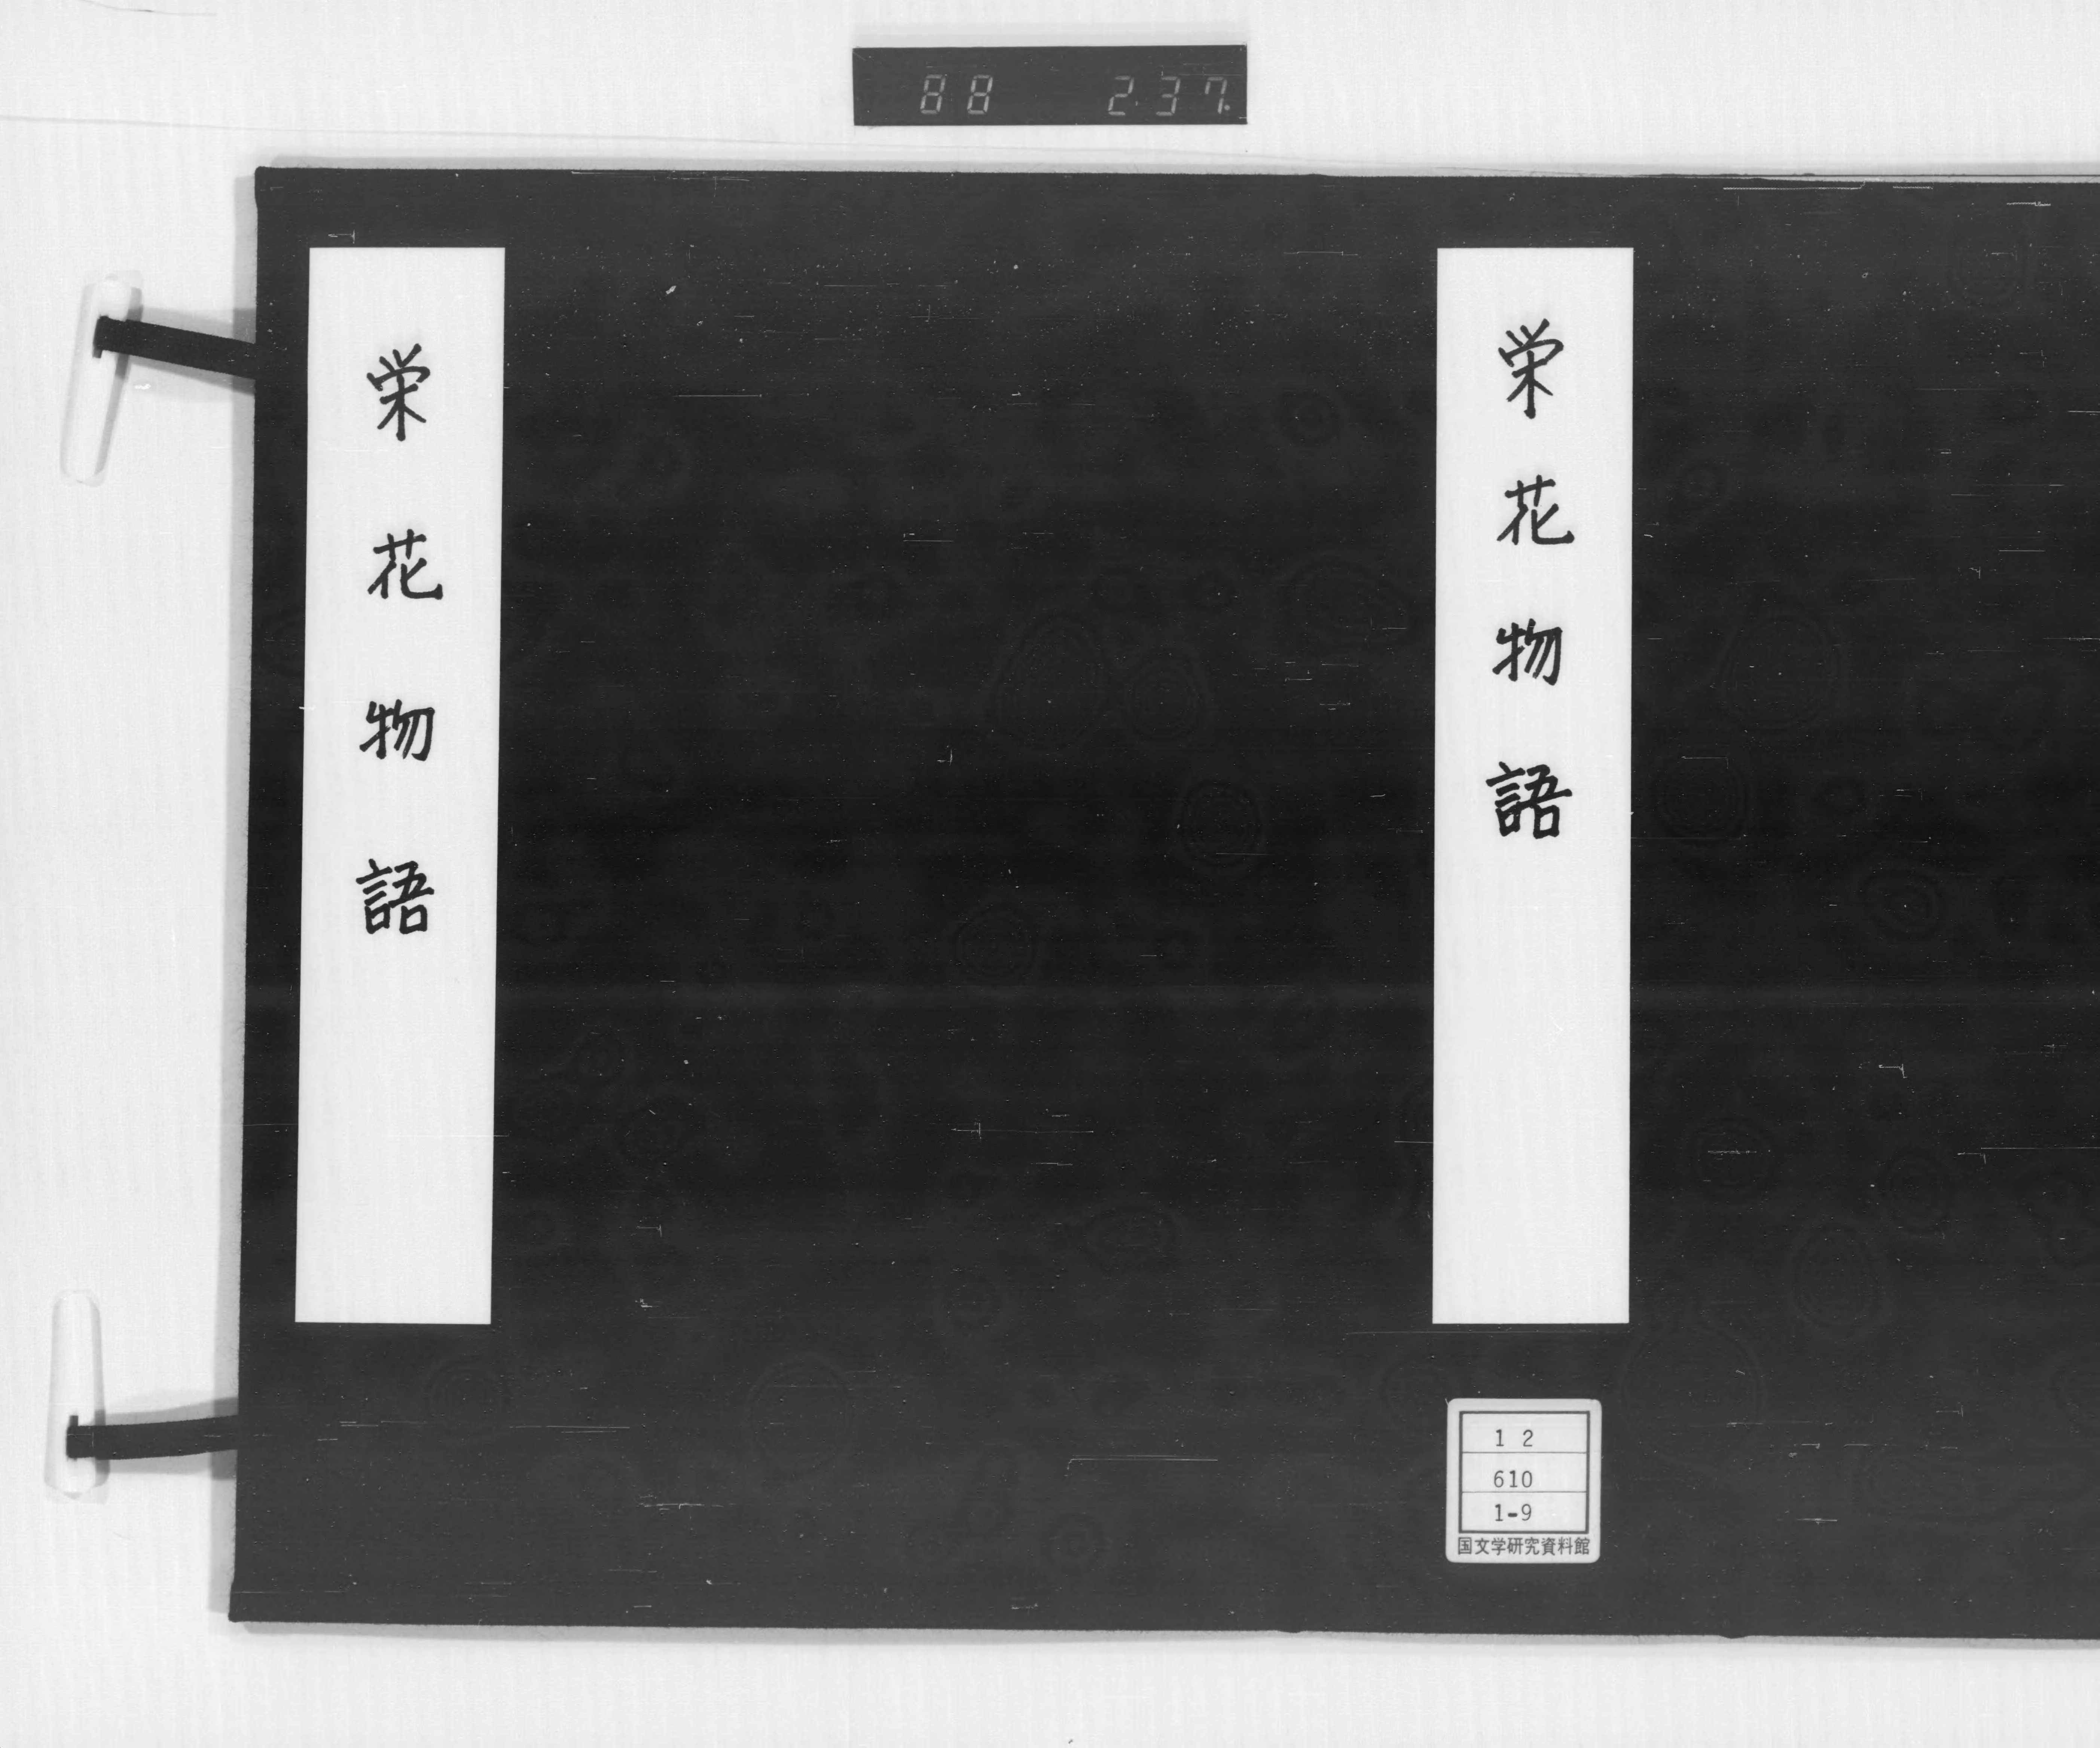 88 2.37.
栄花物語
栄花物語
12
610
1-9
国文学研究資料館